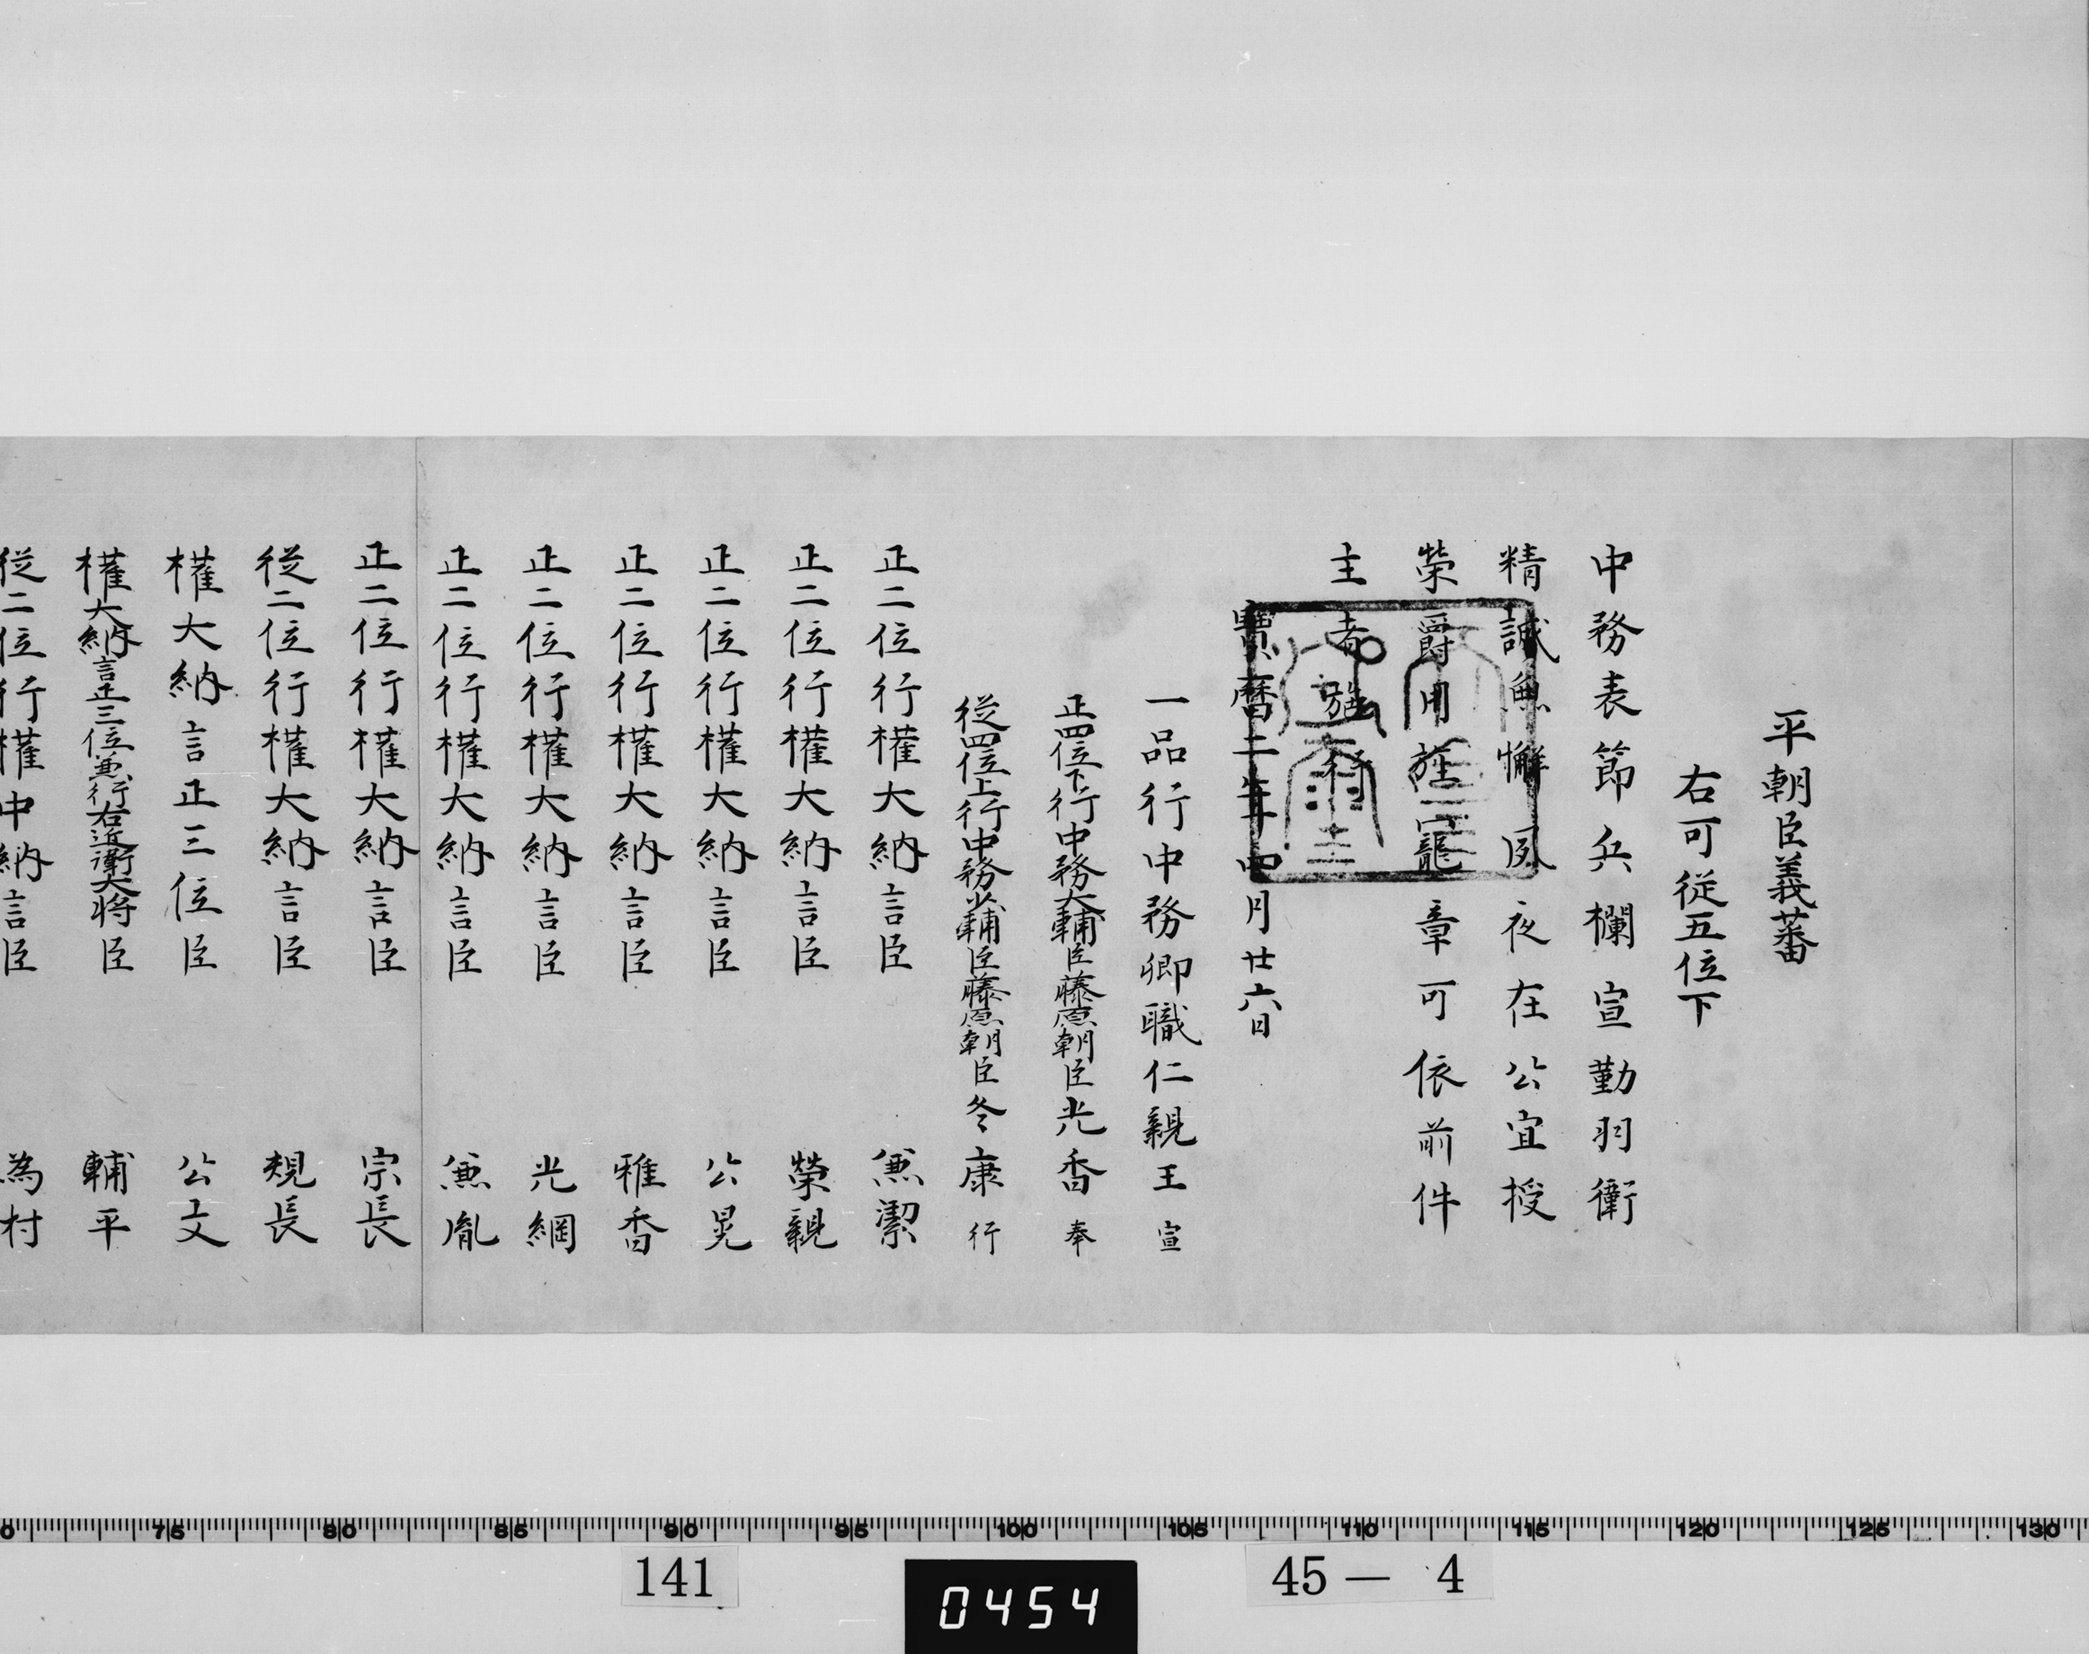 平朝臣義蕃
右可従五位下
中務表節兵欄宣勤羽衛
精誠無懈夙夜在公宜授
榮爵用旌寵章可依前件
主者施行
寶曆二年四月廿六日
一品行中務卿職仁親王 宣
正四位下行中務大輔臣藤原朝臣光香 奉
従四位上行中務少輔臣藤原朝臣冬康 行
正二位行權大納言臣 兼潔
正二位行權大納言臣 榮親
正二位行權大納言臣 公晃
正二位行權大納言臣 雅香
正二位行權大納言臣 光綱
正二位行權大納言臣 兼胤
正二位行權大納言臣 宗長
従二位行權大納言臣 規長
權大納言正三位臣 公文
權大納言正三位兼行右近衛大将臣 輔平
従二位行權中納言臣 為村
0 75 80 85 90 95 100 105 110 115 120 125 130
141
0454
45— 4